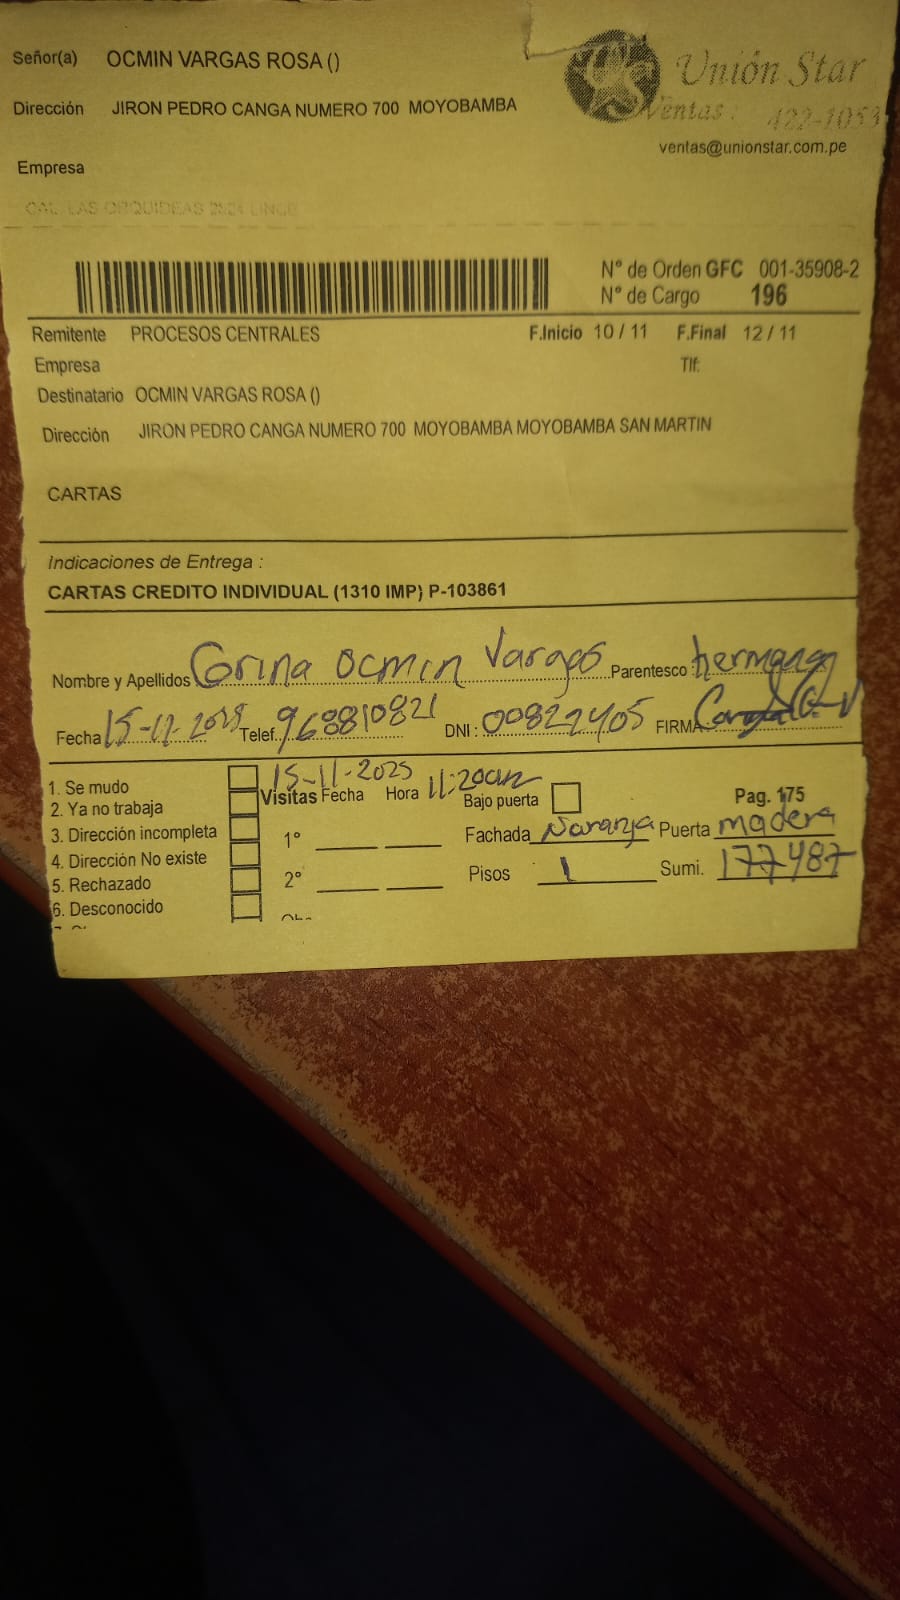 Señor(a) OCMIN VARGAS ROSA ()
Unión Star
Dirección JIRON PEDRO CANGA NUMERO 700 MOYOBAMBA
Ventas : 422-1053
ventas@unionstar.com.pe
Empresa
CAL. LAS ORQUIDEAS 2624 LINCE
N° de Orden GFC 001-35908-2
N° de Cargo 196
Remitente PROCESOS CENTRALES F.Inicio 10 / 11 F.Final 12 / 11
Empresa Tlf:
Destinatario OCMIN VARGAS ROSA ()
Dirección JIRON PEDRO CANGA NUMERO 700 MOYOBAMBA MOYOBAMBA SAN MARTIN
CARTAS
Indicaciones de Entrega :
CARTAS CREDITO INDIVIDUAL (1310 IMP) P-103861
Nombre y Apellidos Corina Ocmin Vargas Parentesco : hermana
Fecha 15-11-2025 Telef. 968810821 DNI : 00822405 FIRMA:
15-11-2025 11:20am
1. Se mudo Visitas Fecha Hora Bajo puerta Pag. 175
2. Ya no trabaja
3. Dirección incompleta 1° Fachada Naranja Puerta madera
4. Dirección No existe
5. Rechazado 2° Pisos 1 Sumi. 177487
6. Desconocido